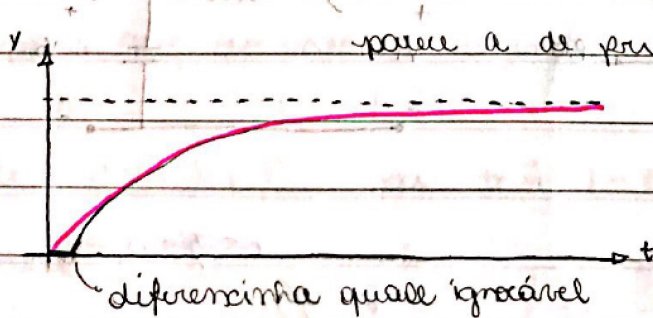 y
parece a de pri
t
diferencinha quase ignorável